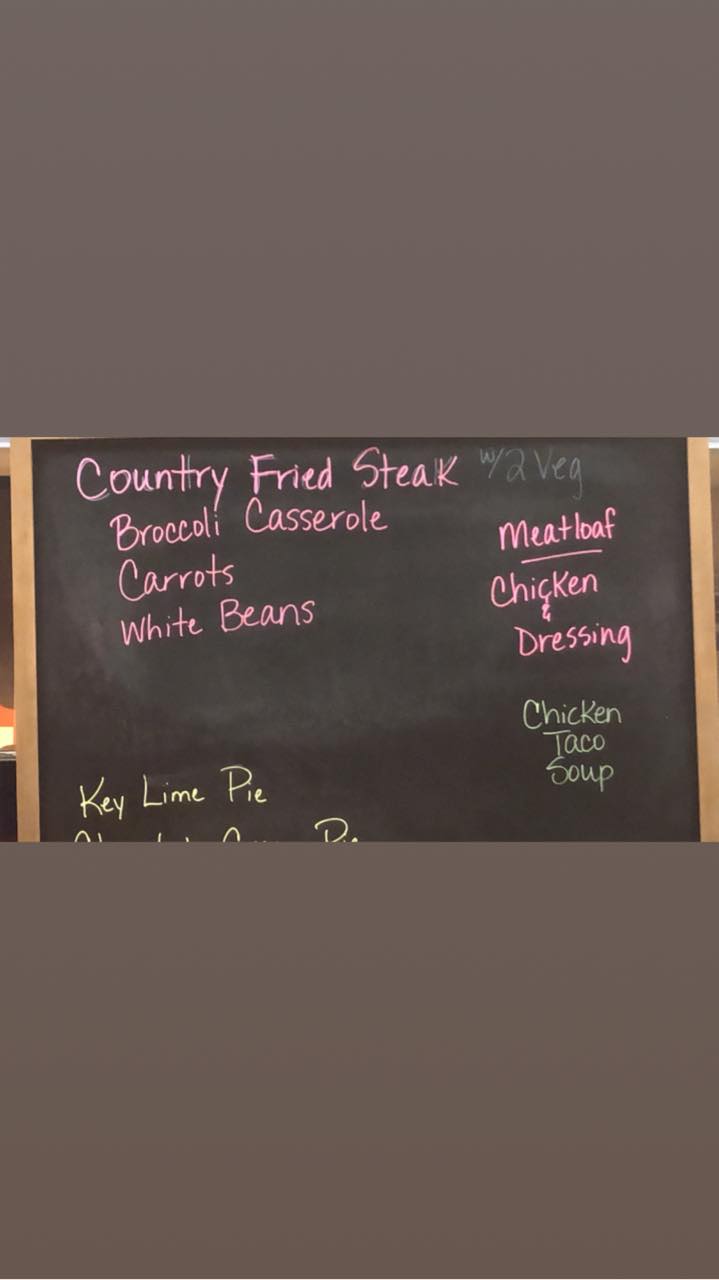 Country Fried Steak w/2 Veg
Broccoli Casserole
Carrots
White Beans
Meatloaf
Chicken
&
Dressing
Chicken
Taco
Soup
Key Lime Pie
Pie